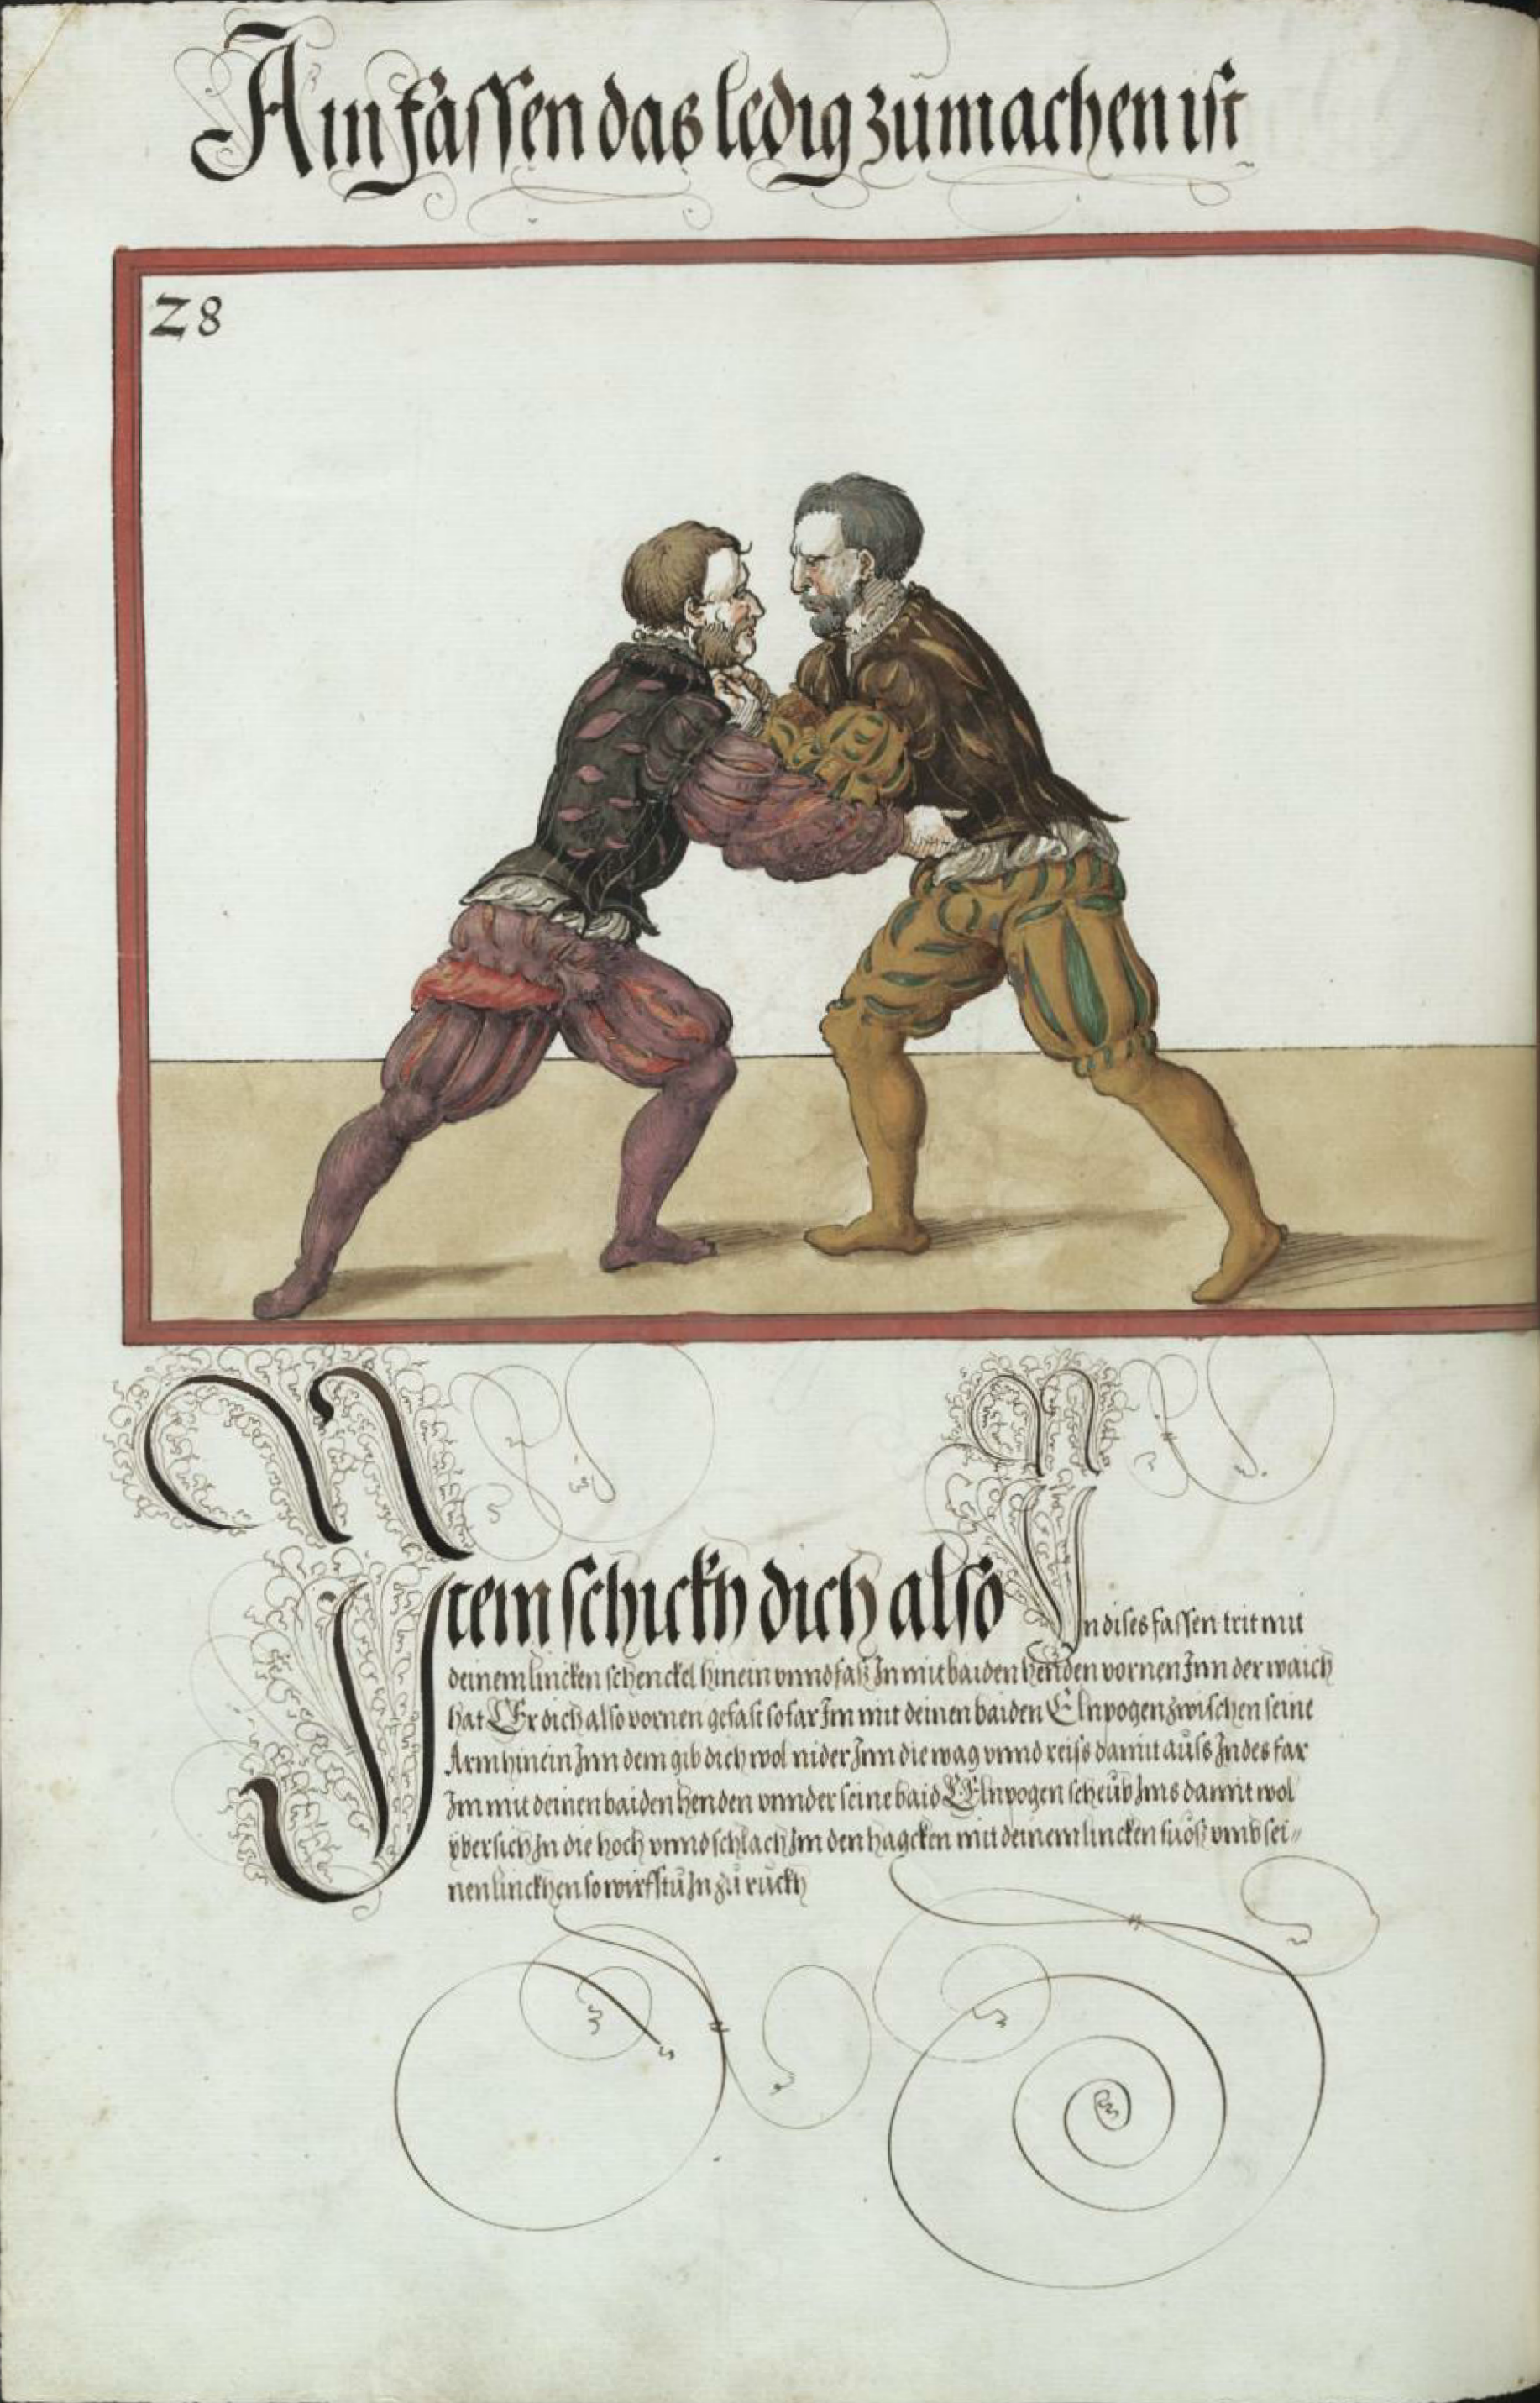 Ain fassen das ledig zumachen ist
28
Item schickh dich also Inn dises fassen trit mit
deinem lincken schenckel hinein vnnd faß In mit baiden henden vornen Inn der waich
hat Er dich also vornen gefast so far Im mit deinen baiden Elnpogen zwischen seine
Arm hinein Inn dem gib dich wol nider Inn die wag vnnd reiss damit auss Indes far
Im mit deinen baiden henden vnnder seine baid Elnpogen scheub Ims damit wol
ybersich In die hoch vnnd schlach Im den hagcken mit deinem lincken fuoß vmb sei=
nen linckhen so wirfstu In zu ruckh